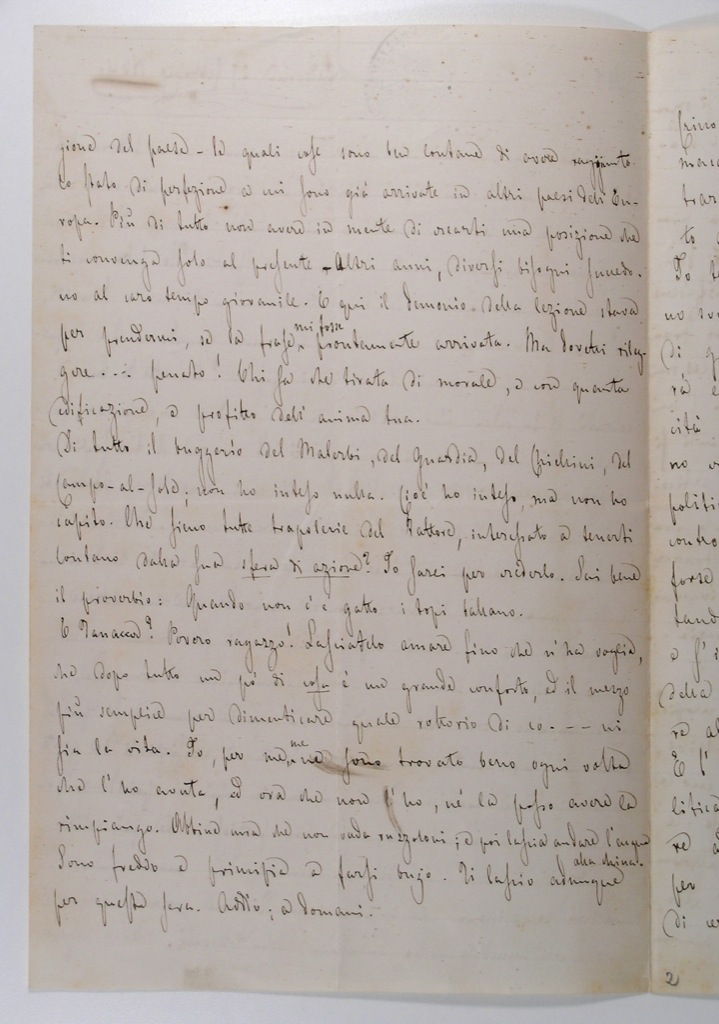 gione del paese – le quali cose sono ben lontane di avere raggiunto
lo stato di perfezione a cui sono già arrivate in altri paesi dell'Eu-
ropa. Più di tutto non avere in mente di crearti una posizione che
ti convenga solo al presente – Altri anni, diversi bisogni succedo-
no al caro tempo giovanile. E qui il demonio della lezione stava
per prendermi, se la frase mi fosse prontamente arrivata. Ma dovetti rileg-
gere... peccato! Chi sa che tirata di morale, e con quanta
edificazione, e profitto dell'anima tua.
Di tutto il buggerio del Malerbi, del Guardia, del Chichini, del
Campo-al-sole; non ho inteso nulla. Cioè ho inteso, ma non ho
capito. Che sieno tutte trapolerie del Fattore, interessato a tenerti
lontano dalla sua sfera di azione? Io sarei per crederlo. Sai bene
il proverbio: Quando non c'è gatto i topi ballano.
E Vanaccod? Povero ragazzo! Lasciatelo amare fino che n'ha voglia,
che dopo tutto un pò di cosa è un grande conforto, ed il mezzo
più semplice per dimenticare quale rottorio di co--- ni
sia la vita. Io, per me, me ne sono trovato bene ogni volta
che l'ho avuta, ed ora che non l'ho, né la posso avere la
rimpiango. Abbine una che non vada ruzzoloni; e poi lascia andare l'acqua
alla china.
Sono freddo e principia a farsi bujo. Ti lascio adunque
per questa sera. Addio; a domani.
frino
maca
tras
to
Io
no
di
rà e
cità
no
politi
contro
forse
tand
e s'
della
re al
E l'
litica
re
per
di
2